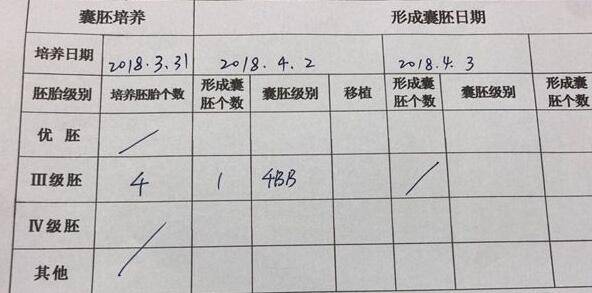 囊胚培养 形成囊胚日期
培养日期 2018.3.31 2018.4.2 2018.4.3
胚胎级别 培养胚胎个数 形成囊胚个数 囊胚级别 移植 形成囊胚个数 囊胚级别 形成囊胚个数
优 胚 /
III级胚 4 1 4BB /
IV级胚 /
其他